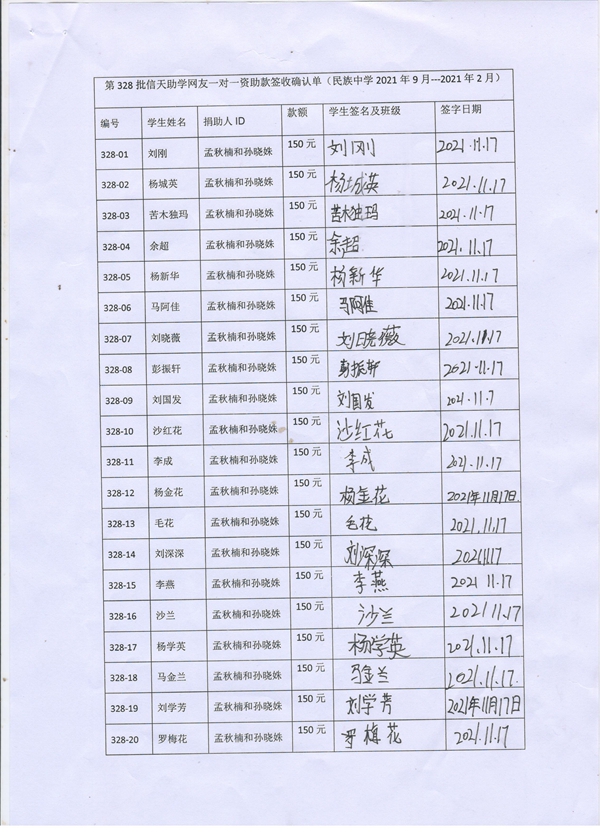 第 328 批信天助学网友一对一资助款签收确认单（民族中学 2021 年 9 月---2021 年 2 月）
编号 学生姓名 捐助人 ID 款额 学生签名及班级 签字日期
328-01 刘刚 孟秋楠和孙晓姝 150 元 刘刚 2021.11.17
328-02 杨城英 孟秋楠和孙晓姝 150 元 杨城英 2021.11.17
328-03 苦木独玛 孟秋楠和孙晓姝 150 元 苦木独玛 2021.11.17
328-04 余超 孟秋楠和孙晓姝 150 元 余超 2021.11.17
328-05 杨新华 孟秋楠和孙晓姝 150 元 杨新华 2021.11.17
328-06 马阿佳 孟秋楠和孙晓姝 150 元 马阿佳 2021.11.17
328-07 刘晓薇 孟秋楠和孙晓姝 150 元 刘晓薇 2021.11.17
328-08 彭振轩 孟秋楠和孙晓姝 150 元 彭振轩 2021.11.17
328-09 刘国发 孟秋楠和孙晓姝 150 元 刘国发 2021.11.7
328-10 沙红花 孟秋楠和孙晓姝 150 元 沙红花 2021.11.17
328-11 李成 孟秋楠和孙晓姝 150 元 李成 2021.11.17
328-12 杨金花 孟秋楠和孙晓姝 150 元 杨金花 2021年11月17日
328-13 毛花 孟秋楠和孙晓姝 150 元 毛花 2021.11.17
328-14 刘深深 孟秋楠和孙晓姝 150 元 刘深深 20211117
328-15 李燕 孟秋楠和孙晓姝 150 元 李燕 2021 11.17
328-16 沙兰 孟秋楠和孙晓姝 150 元 沙兰 2021 11.17
328-17 杨学英 孟秋楠和孙晓姝 150 元 杨学英 2021.11.17
328-18 马金兰 孟秋楠和孙晓姝 150 元 马金兰 2021.11.17
328-19 刘学芳 孟秋楠和孙晓姝 150 元 刘学芳 2021年11月17日
328-20 罗梅花 孟秋楠和孙晓姝 150 元 罗梅花 2021.11.17